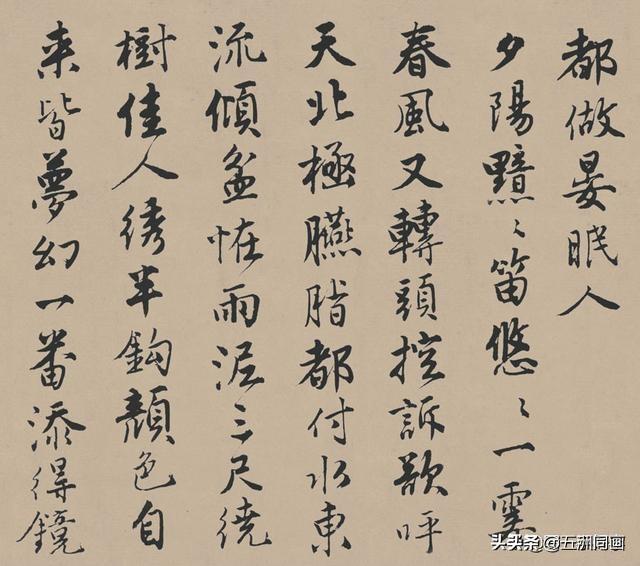 都做晏眠人
夕陽黯〻笛悠〻一霎
春風又轉頭控訴欲呼
天北極臙脂都付水東
流傾盆恠雨泥三尺繞
樹佳人綉半鈎顏色自
来皆夢幻一番添得鏡
头条@五洲同画